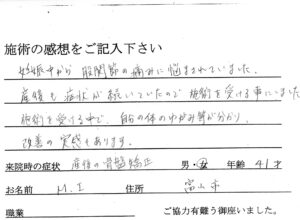 施術の感想をご記入下さい
妊娠中から股関節の痛みに悩まされていました。
産後も症状が続いていたので施術を受ける事にしました
施術を受ける中で、自分の体のゆがみ等が分かり、
改善の実感もあります。
来院時の症状 産後の骨盤矯正 男・女 年齢 41才
お名前 M.I 住所 富山市
職業 ご協力有難う御座いました。